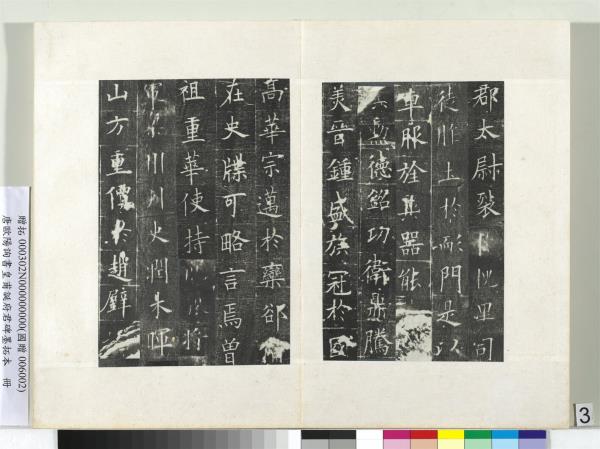 郡太尉裂槐里司
徒胙土於耏門是以
車服旌其器能
德銘功衛鼎騰
美晉鍾盛族冠於國
高華宗邁於欒郤
在史牒可略言焉曾
祖重華使持將
軍梁州刺史潤木暉
山方重價於趙璧
贈拓 000302N000000000(國贈 006002)
唐歐陽詢書皇甫誕府君碑墨拓本 冊
3